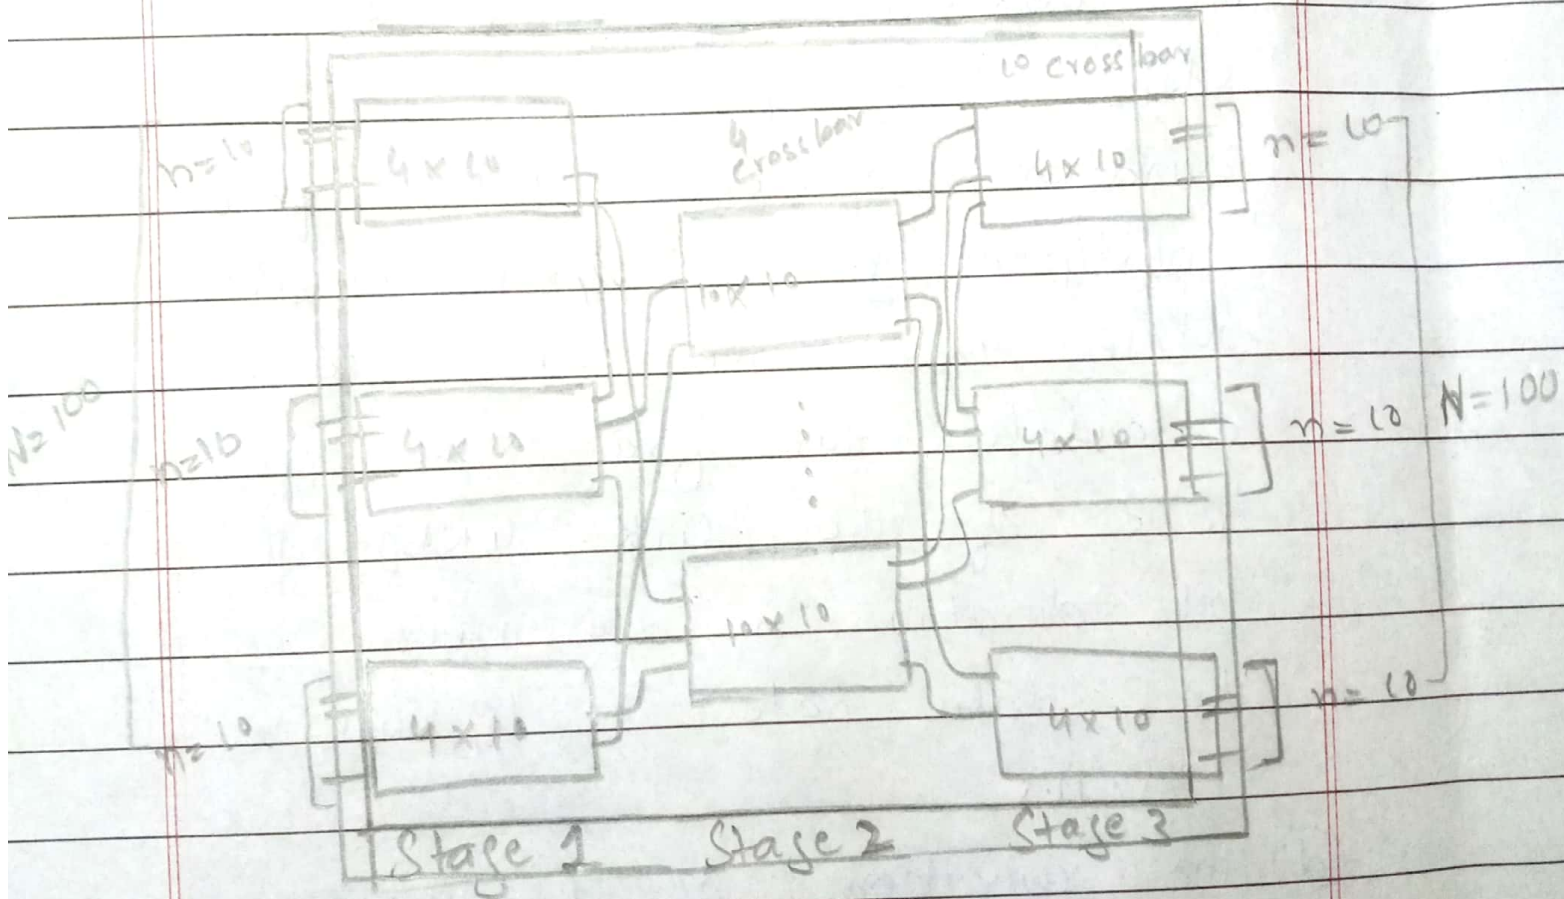 10 crossbar
n=10
4 x 10
4
crossbar
4 x 10
n= 10
10x 10
N=100
n=10
4 x 10
4 x 10
n= 10
N=100
10 x 10
n= 10
4 x 10
4 x 10
n= 10
Stage 1
Stage 2
Stage 3